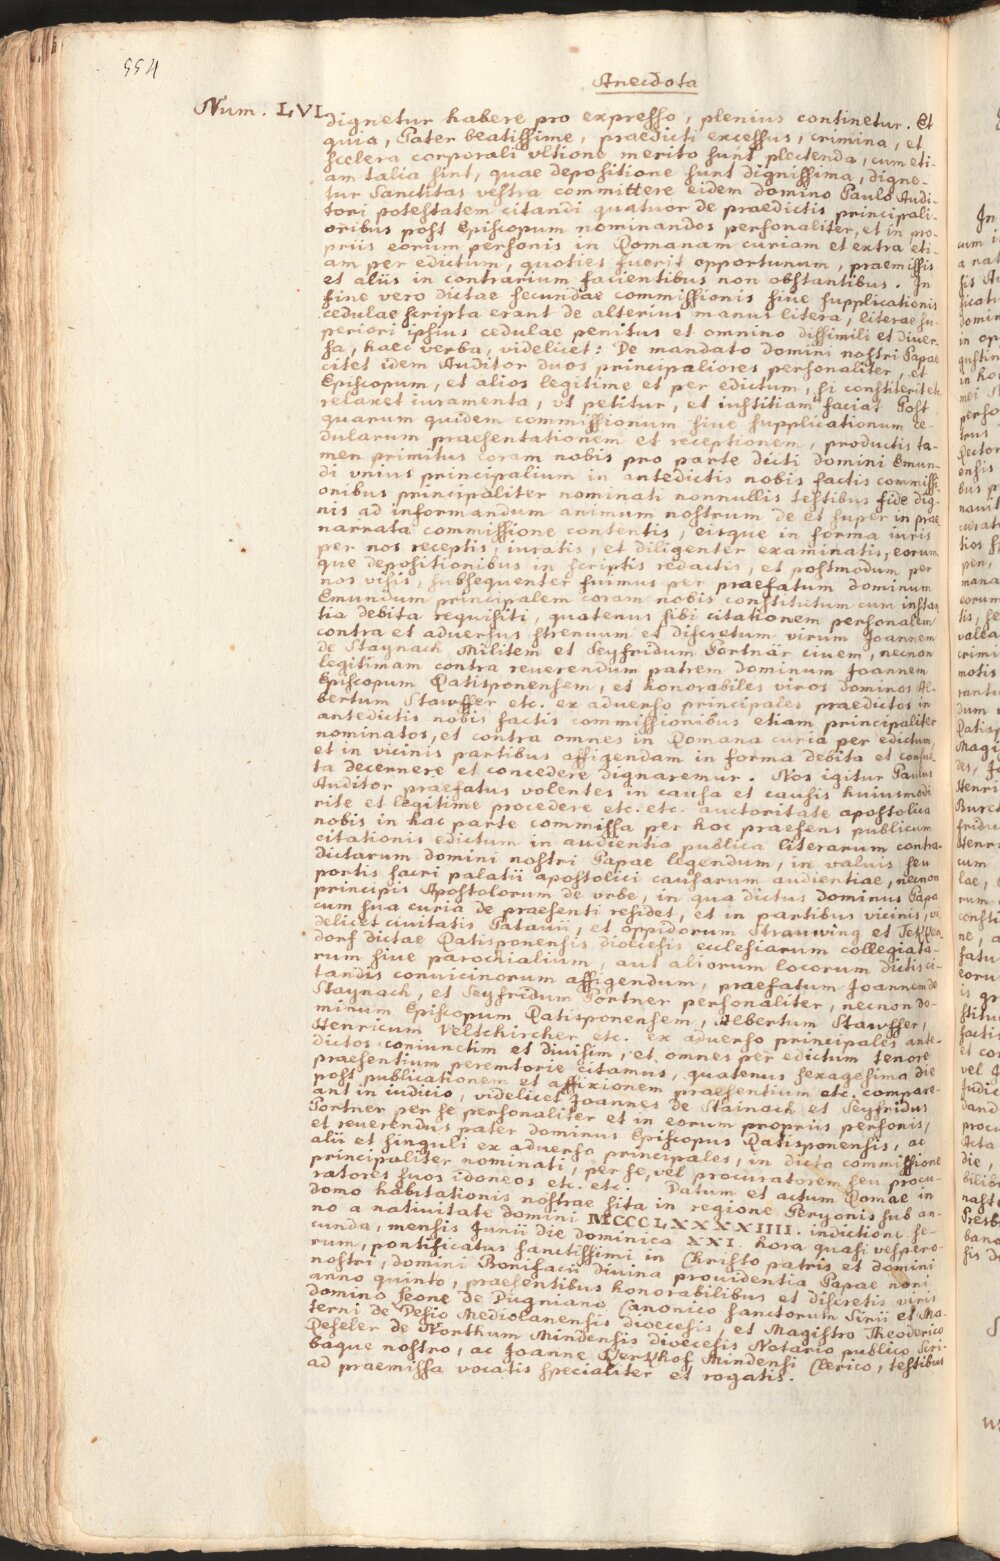 554
Anecdota
Num. LVI
dignetur habere pro expresso, plenius continetur. Et
quia, Pater beatissime, praedicti excessus, crimina, et
scelera corporali vltione merito sunt plectenda, cum eti-
am talia sint, quae depositione sunt dignissima, digne-
tur Sanctitas vestra committere eidem domino Paulo Audi-
tori potestatem citandi quatuor de praedictis principali-
oribus post Episcopum nominandos personaliter, et in pro-
priis eorum personis in Romanam curiam et extra eti-
am per edictum, quoties fuerit opportunum, praemissis
et aliis in contrarium facientibus non obstantibus. In
fine vero dictae secundae commissionis siue supplicationis
cedulae scripta erant de alterius manus litera, literae su-
periori ipsius cedulae penitus et omnino dissimili et diuer-
sa, haec verba, videlicet: De mandato domini nostri Papae
citet idem Auditor duos principaliores personaliter, et
Episcopum, et alios legitime et per edictum, si constiterit etc.
relaxet iuramenta, vt petitur, et iustitiam faciat Post
quarum quidem commissionum siue supplicationum ce-
dularum praesentationem et receptionem, productis ta-
men primitus coram nobis pro parte dicti domini Emun-
di vnius principalium in antedictis nobis factis commissi-
onibus principaliter nominati nonnullis testibus fide dig-
nis ad informandum animum nostrum de et super in prae
narrata commissione contentis, eisque in forma iuris
per nos receptis, iuratis, et diligenter examinatis, eorum
que depositionibus in scriptis redactis, et postmodum per
nos visis, subsequenter fuimus per praefatum dominum
Emundum principalem coram nobis constitutum cum instan
tia debita requisiti, quatenus sibi citationem personalem
contra et aduersus strenuum et discretum virum Joannem
de Staynach Militem et Seyfridum Portnär ciuem, necnon
legitimam contra reuerendum patrem dominum Joannem
Episcopum Ratisponensem, et honorabiles viros dominos Al-
bertum Stawffer etc. ex aduerso principales praedictos in
antedictis nobis factis commissionibus etiam principaliter
nominatos, et contra omnes in Romana curia per edictum,
et in vicinis partibus affigendam in forma debita et consue-
ta decernere et concedere dignaremur. Nos igitur Paulus
Auditor praefatus volentes in causa et causis huiusmodi
rite et legitime procedere etc. etc. auctoritate apostolica
nobis in hac parte commissa per hoc praesens publicum
citationis edictum in audientia publica literarum contra-
dictarum domini nostri Papae legendum, in valuis seu
portis sacri palatii apostolici causarum audientiae, necnon
principis Apostolorum de vrbe, in qua dictus dominus Papa
cum sua curia de praesenti residet, et in partibus vicinis, vi-
delicet ciuitatis Patauii, et oppidorum Strauwing et Tekken
dorf dictae Ratisponensis dioecesis ecclesiarum collegiata-
rum siue parochialium, aut aliorum locorum dictis ci-
tandis conuicinorum affigendum, praefatum Joannem de
Staynach, et Seyfridum Portner personaliter, necnon do-
minum Episcopum Ratisponensem, Albertum Stawffer,
Henricum Veltchircher etc. ex aduerso principales ante-
dictos coniunctim et diuisim, et omnes per edictum tenore
praesentium peremtorie citamus, quatenus sexagesima die
post publicationem et affixionem praesentium etc. compare-
ant in iudicio, videlicet Joannes de Stainach et Seyfridus
Portner per se personaliter et in eorum propriis personis,
et reuerendus pater dominus Episcopus Ratisponensis, ac
alii et singuli ex aduerso principales, in dicta commissione
principaliter nominati, per se, vel procuratorem seu procu-
ratores suos idoneos etc. etc. Datum et actum Romae in
domo habitationis nostrae sita in regione Peryonis sub an-
no a natiuitate domini MCCCLXXXXIIII. indictione se-
cunda, mensis Junii die dominica XXI. hora quasi vespero-
rum, pontificatus sanctissimi in Christo patris et domini
nostri, domini Bonifacii diuina prouidentia Papae noni
anno quinto, praesentibus honorabilibus et discretis viris
domino Leone de Dugniano Canonico sanctorum Sirii et Ma-
terni de Desio Mediolanensis dioecesis, et Magistro Theoderico
Reseler de Northum Mindensis dioecesis Notario publico Scri-
baque nostro, ac Joanne Kerkhof Mindensi Clerico, testibus
ad praemissa vocatis specialiter et rogatis.